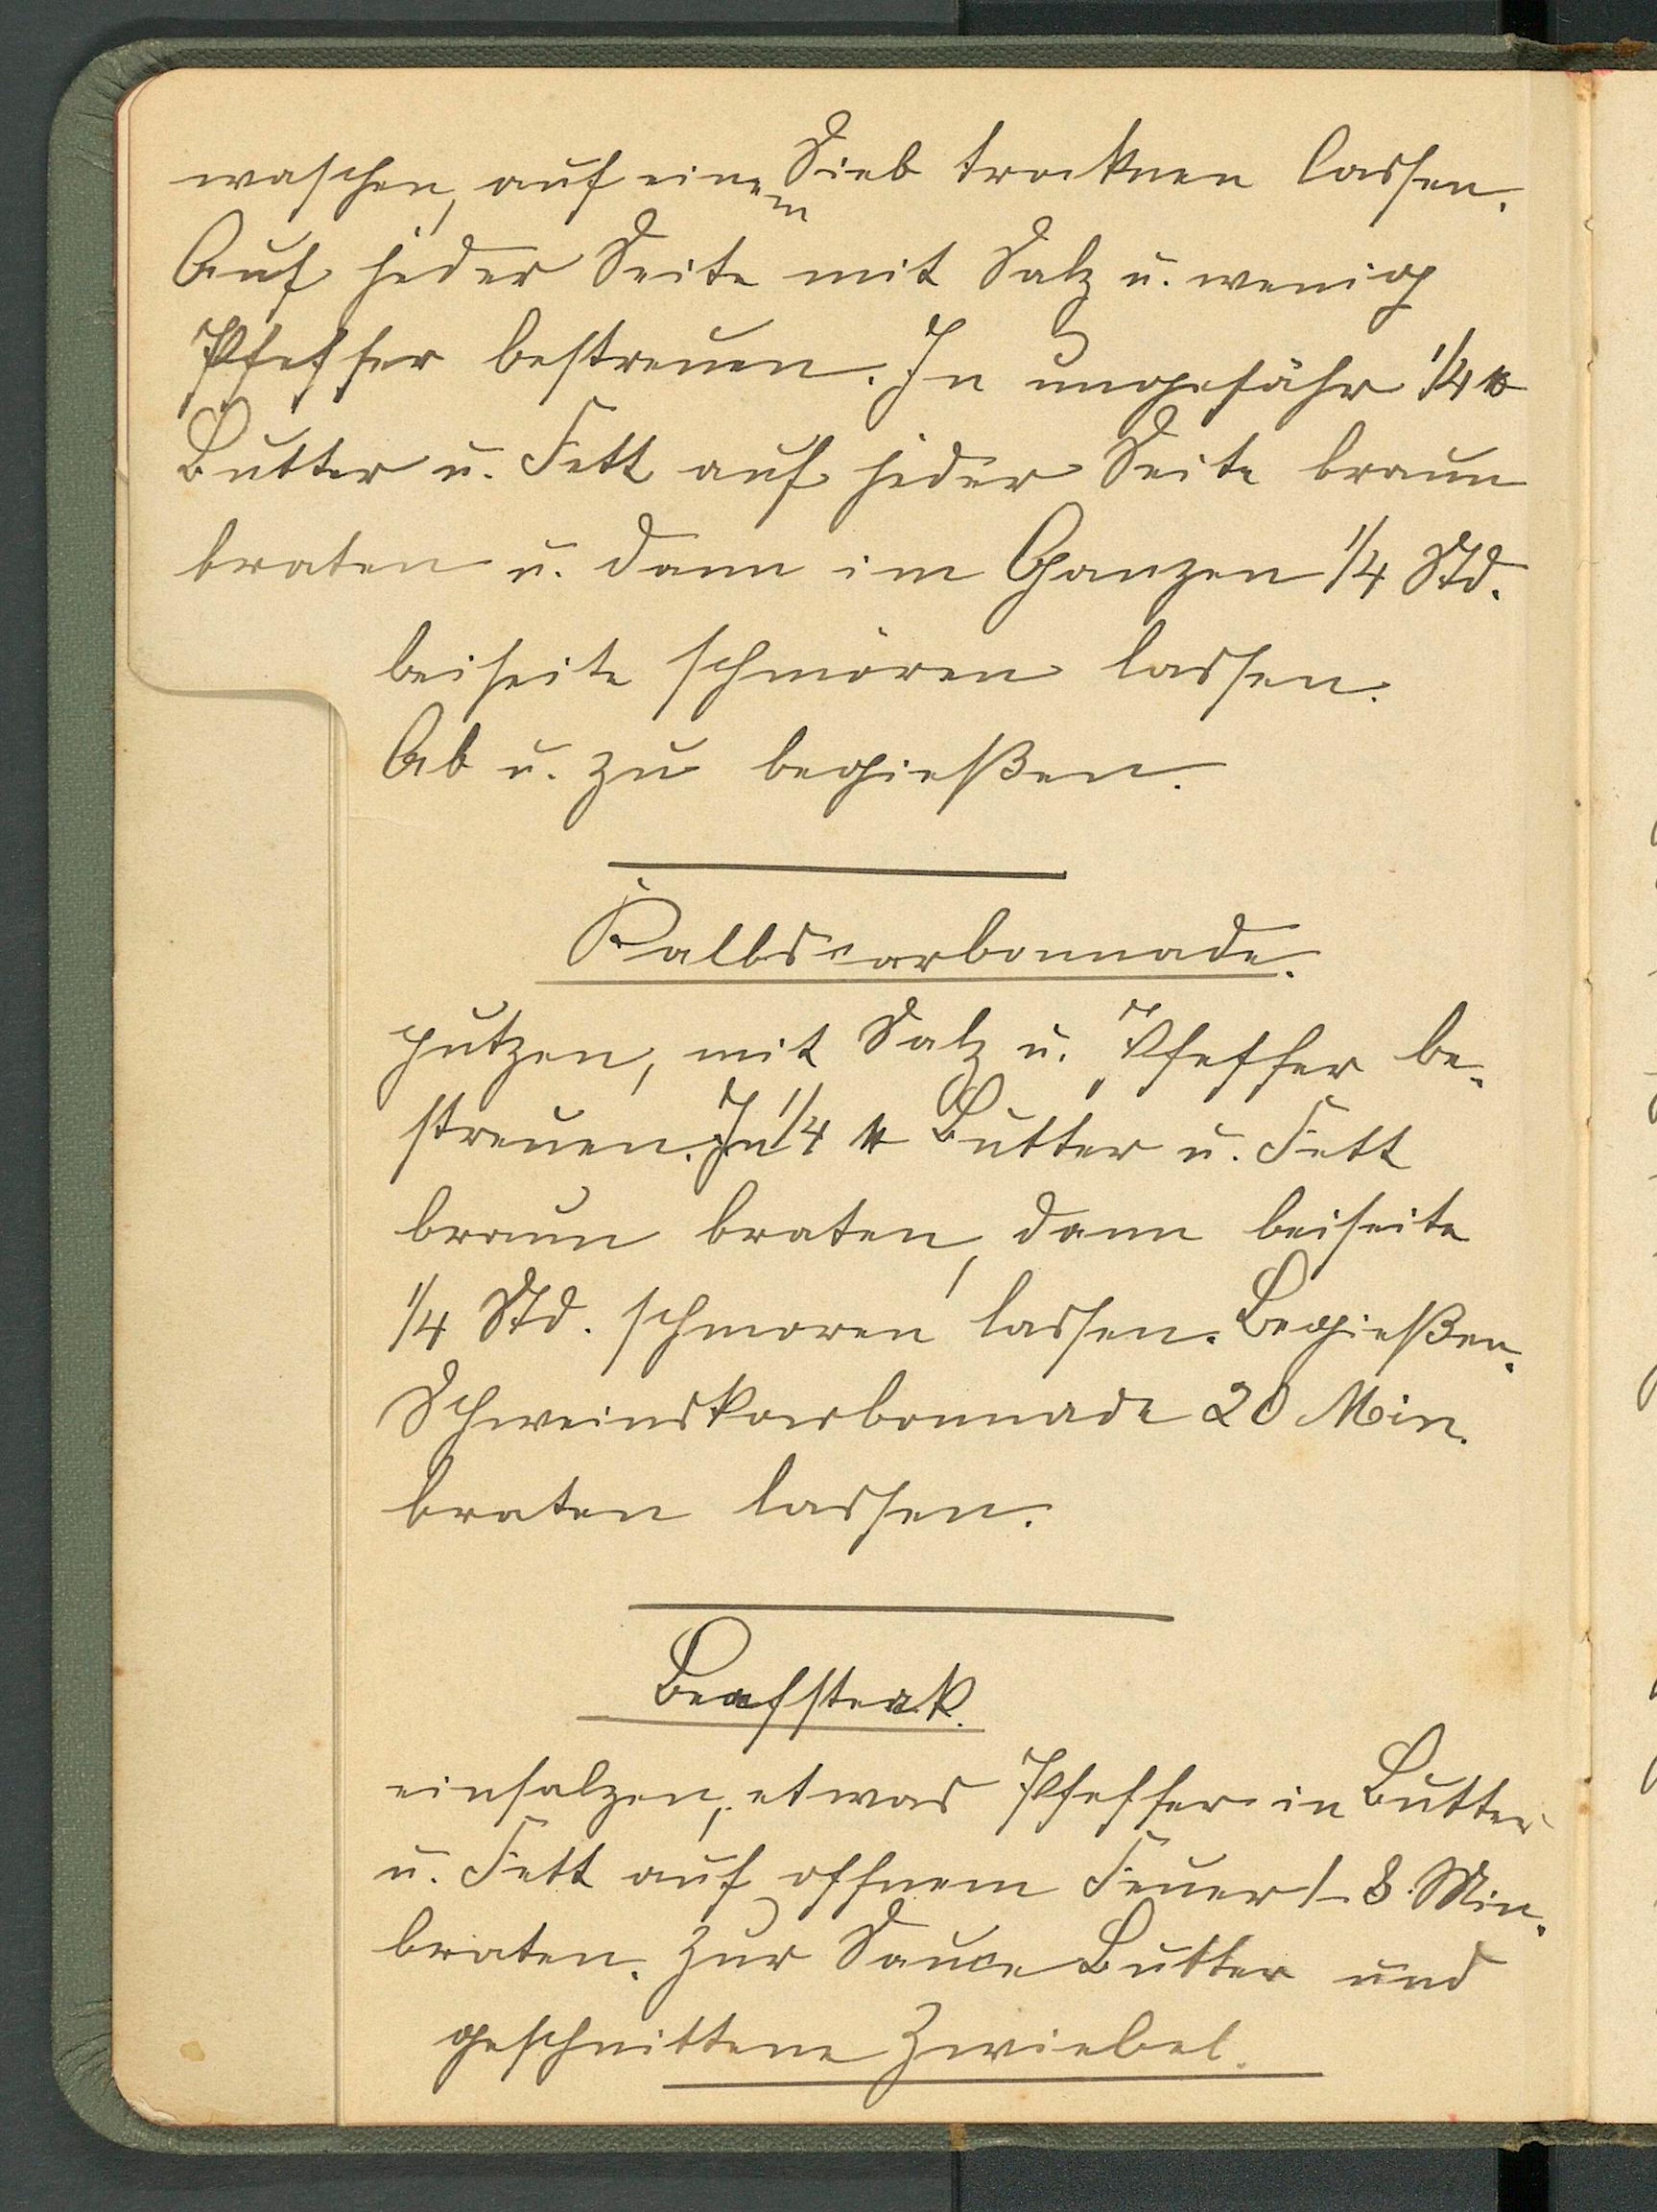 waschen, auf einem Sieb trocknen lassen.
Auf jeder Seite mit Salz u. wenig
Pfeffer bestreuen. In ungefähr 1/4 ℔
Butter u. Fett auf jeder Seite braun
braten u. dann im Ganzen 1/4 Std.
beiseite schmoren lassen.
Ab u. zu begießen.
Kalbscarbonnade.
putzen, mit Salz u. Pfeffer be-
streuen. In 1/4 ℔ Butter u. Fett
braun braten, dann beiseite
1/4 Std. schmoren lassen. Begießen.
Schweinskarbonnade 20 Min.
braten lassen.
Beafsteak.
einsalzen, etwas Pfeffer in Butter
u. Fett auf offnem Feuer 1-8 Min.
braten. Zur Sauce Butter und
geschnittene Zwiebel.